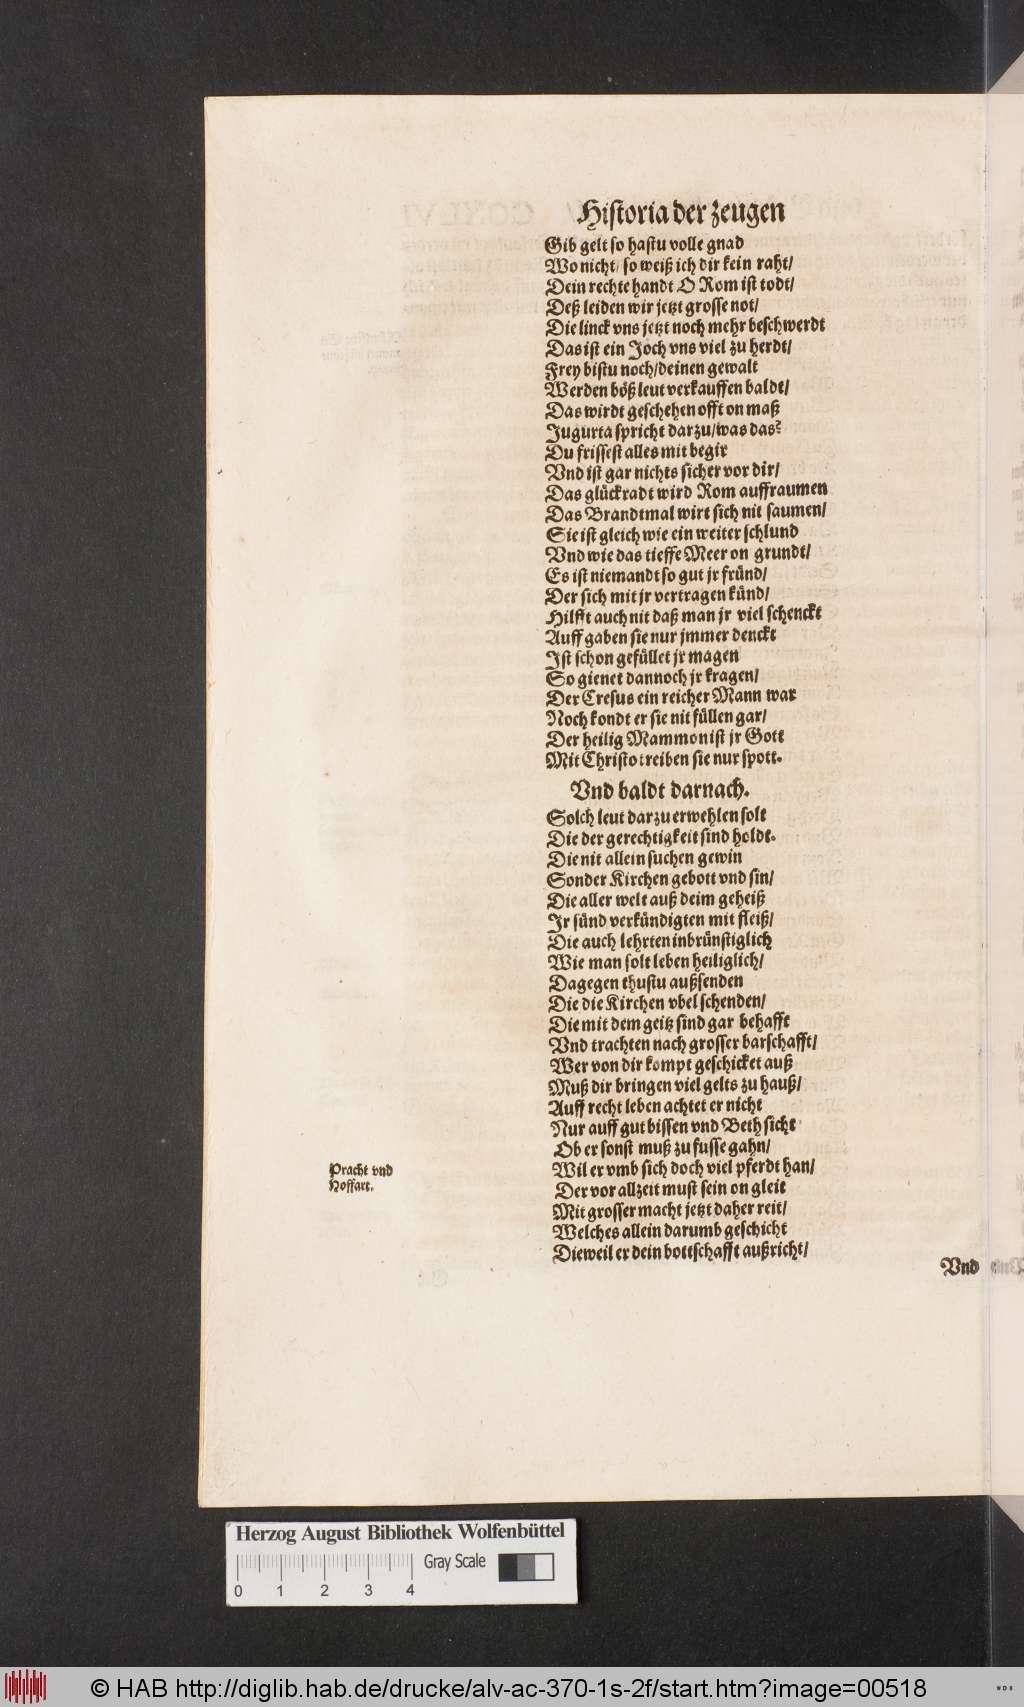 Historia der zeugen
Gib gelt so hastu volle gnad
Wo nicht/ so weiß ich dir kein raht/
Dein rechte handt O Rom ist todt/
Deß leiden wir jetzt grosse not/
Die linck vns jetzt noch mehr beschwerdt
Das ist ein Joch vns viel zu herdt/
Frey bistu noch/deinen gewalt
Werden böß leut verkauffen baldt/
Das wirdt geschehen offt on maß
Jugurta spricht darzu/was das?
Du frissest alles mit begir
Vnd ist gar nichts sicher vor dir/
Das glückradt wird Rom auffraumen
Das Brandtmal wirt sich nit saumen/
Sie ist gleich wie ein weiter schlund
Vnd wie das tieffe Meer on grundt/
Es ist niemandt so gut jr fründ/
Der sich mit jr vertragen künd/
Hilfft auch nit daß man jr viel schenckt
Auff gaben sie nur jmmer denckt
Ist schon gefüllet jr magen
So gienet dannoch jr kragen/
Der Cresus ein reicher Mann war
Noch kondt er sie nit füllen gar/
Der heilig Mammon ist jr Gott
Mit Christo treiben sie nur spott.
Vnd baldt darnach.
Solch leut darzu erwehlen solt
Die der gerechtigkeit sind holdt.
Die nit allein suchen gewin
Sonder Kirchen gebott vnd sin/
Die aller welt auß deim geheiß
Ir sünd verkündigten mit fleiß/
Die auch lehrten inbrünstiglich
Wie man solt leben heiliglich/
Dagegen thustu außsenden
Die die Kirchen vbel schenden/
Die mit dem geitz sind gar behafft
Vnd trachten nach grosser barschafft/
Wer von dir kompt geschicket auß
Muß dir bringen viel gelts zu hauß/
Auff recht leben achtet er nicht
Nur auff gut bissen vnd Beth sicht
Ob er sonst muß zu fusse gahn/
Pracht vnd
Hoffart.
Wil er vmb sich doch viel pferdt han/
Der vor allzeit must sein on gleit
Mit grosser macht jetzt daher reit/
Welches allein darumb geschicht
Dieweil er dein bottschafft außricht/
Vnd
Herzog August Bibliothek Wolfenbüttel
Gray Scale
0 1 2 3 4
© HAB http://diglib.hab.de/drucke/alv-ac-370-1s-2f/start.htm?image=00518